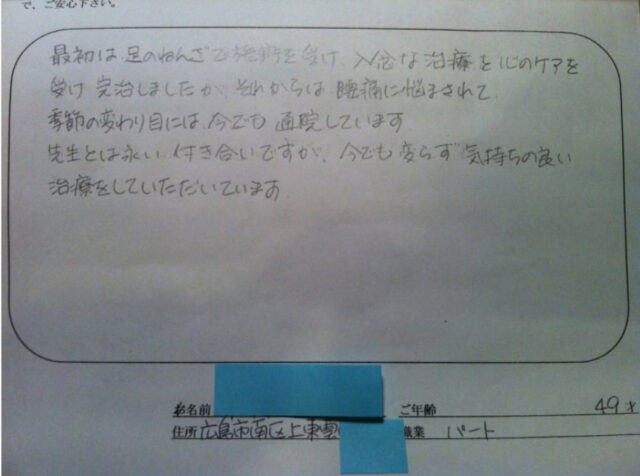 で、ご安心下さい。
最初は足のねんざで施術を受け、入念な治療を心のケアを
受け完治しましたが、それからは腰痛に悩まされて、
季節の変わり目には、今でも通院しています
先生とは永い付き合いですが、今でも変らず気持ちの良い
治療をしていただいています
お名前 ご年齢 49才
住所 広島市南区上東雲 職業 パート